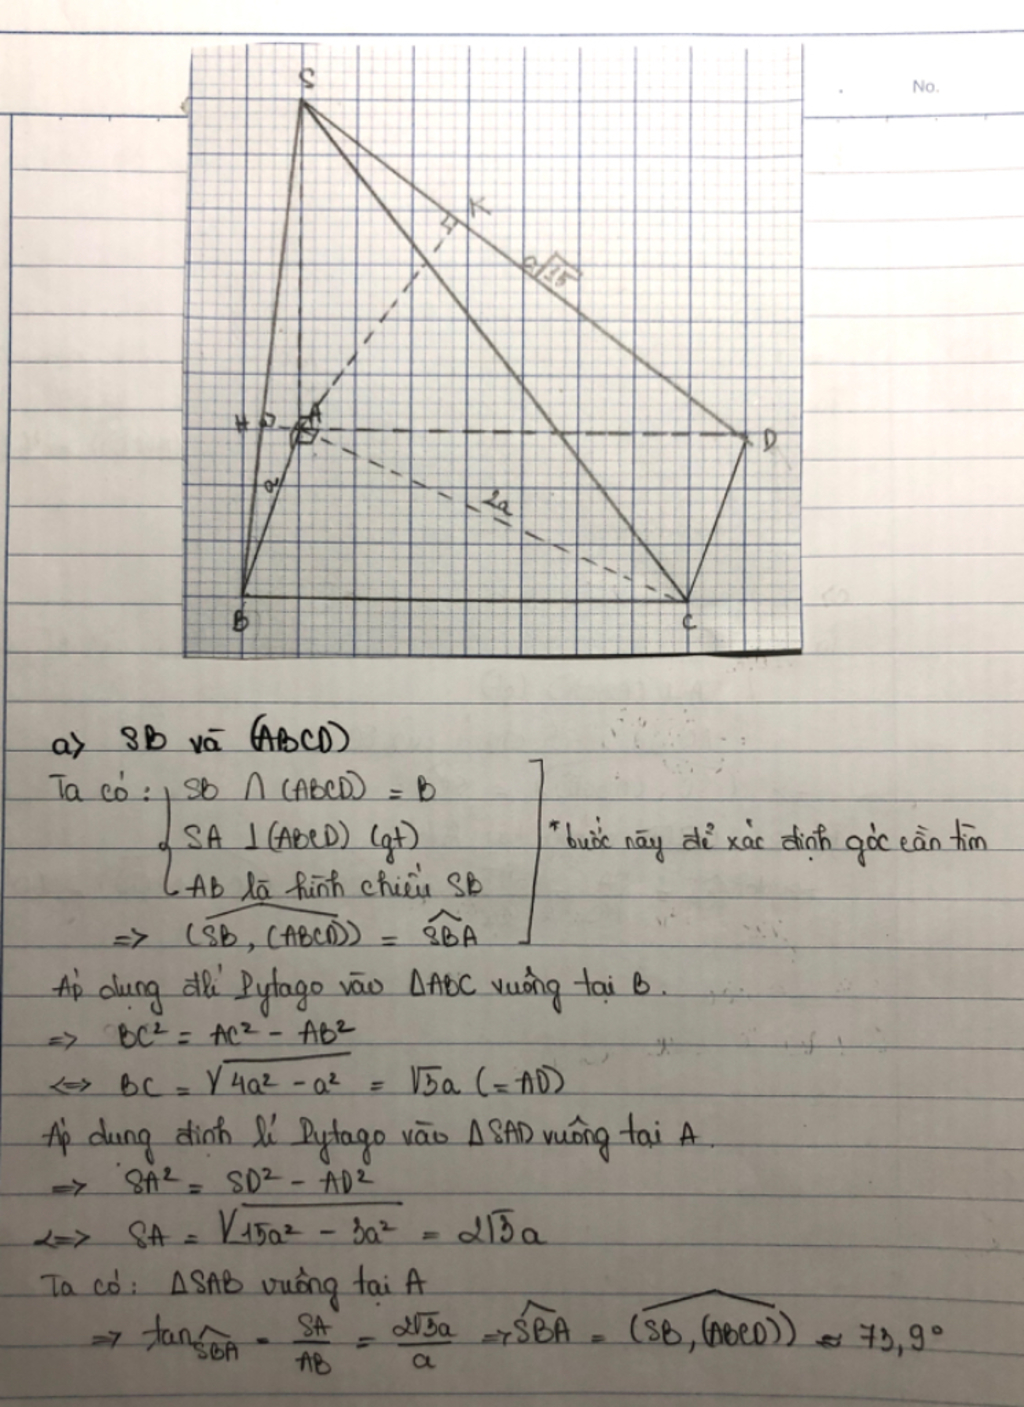 No.
S
K
a√15
H
A
D
a
2a
B
C
a> SB và (ABCD)
Ta có: { SB ∩ (ABCD) = B
SA ⊥ (ABCD) (gt)
AB là hình chiếu SB
=> (SB, (ABCD)) = SBA
*bước này để xác định góc cần tìm
Áp dụng đlí Pytago vào ΔABC vuông tại B.
=> BC² = AC² - AB²
<=> BC = √4a² - a² = √3a (=AD)
Áp dụng định lí Pytago vào ΔSAD vuông tại A.
=> SA² = SD² - AD²
<=> SA = √15a² - 3a² = 2√3a
Ta có: ΔSAB vuông tại A
=> tan SBA = SA/AB = 2√3a/a => SBA = (SB, (ABCD)) ≈ 73,9°